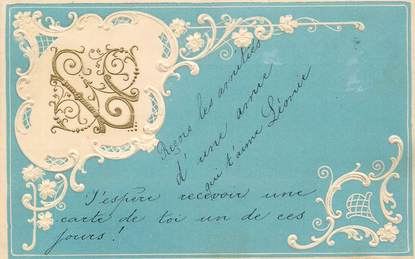 Reçois les amitiés
d'une amie
qui t'aime Léonie
J'espère recevoir une
carte de toi un de ces
jours !